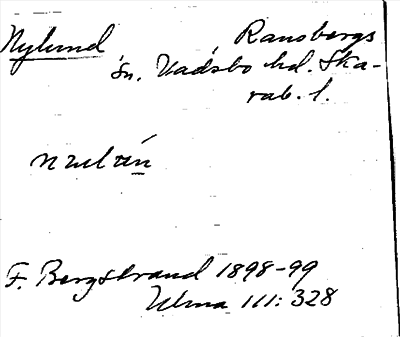 Nylund Ransbergs
sn. Vadsbo hd. Ska-
rab. l.
F. Bergstrand 1898-99
Ulma 111: 328